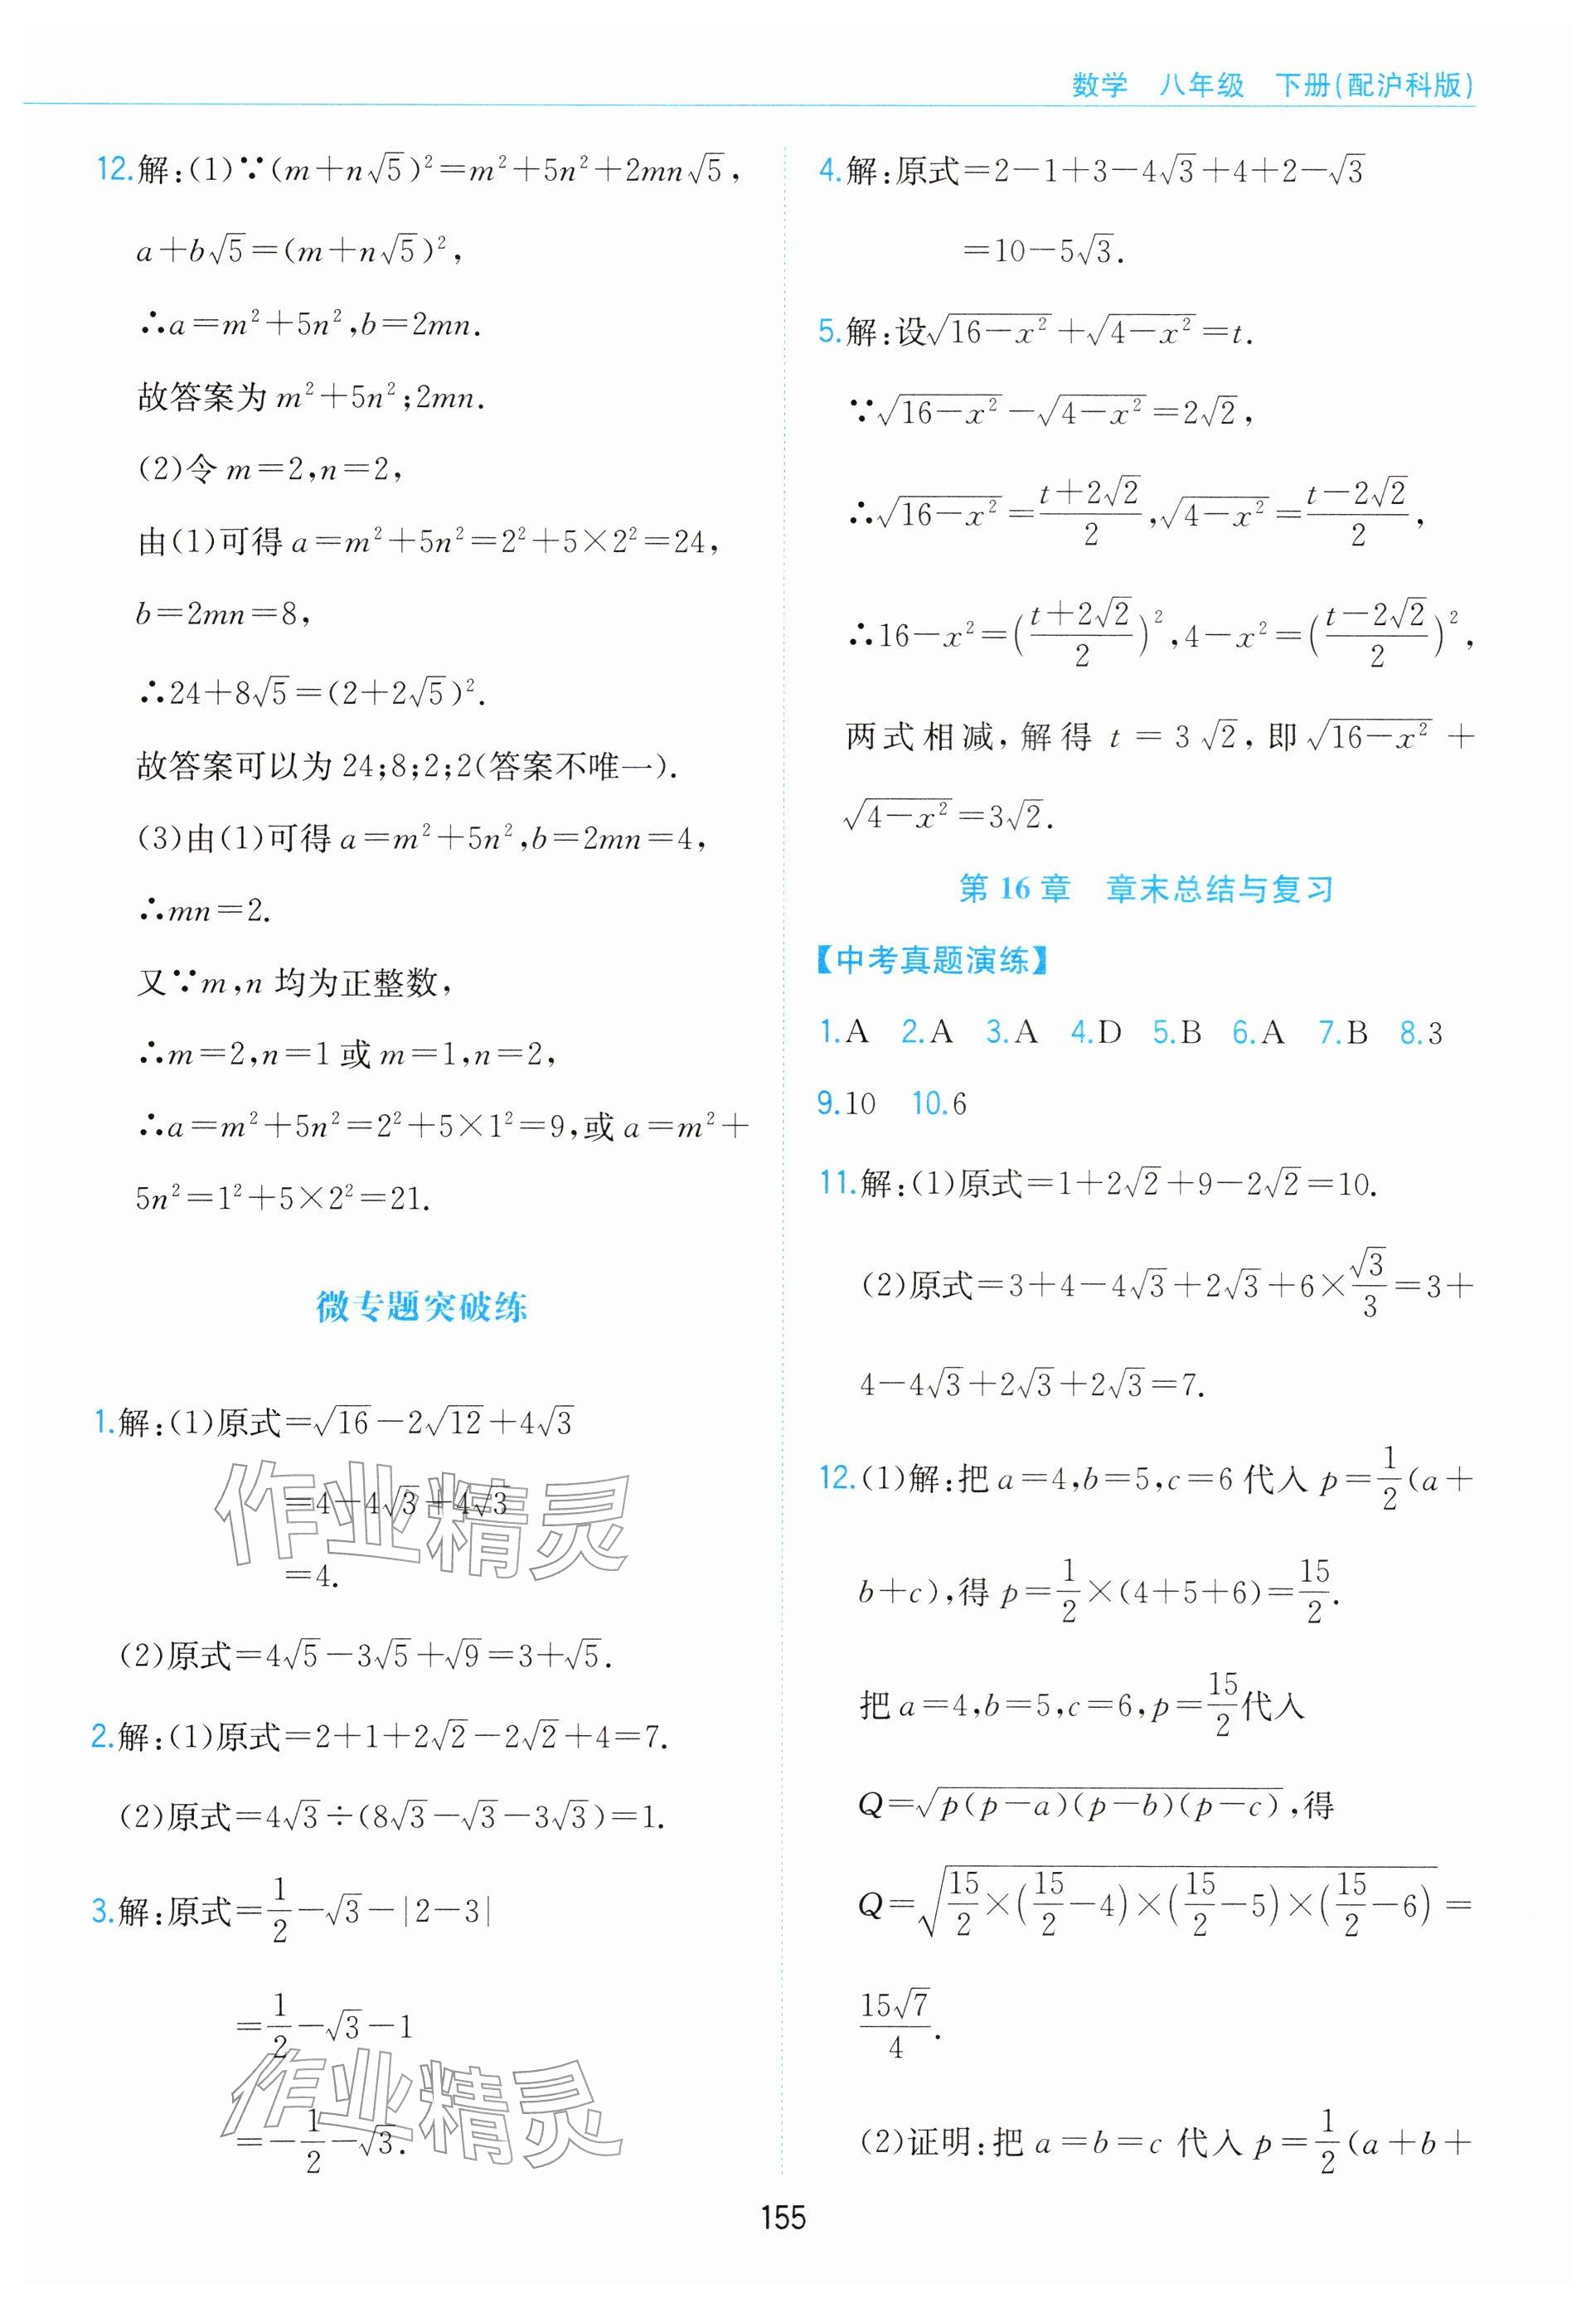 数学 八年级 下册(配沪科版)
12.解:(1)∵(m+n√5)²=m²+5n²+2mn√5,
a+b√5=(m+n√5)²,
∴a=m²+5n²,b=2mn.
故答案为 m²+5n²;2mn.
(2)令 m=2,n=2,
由(1)可得 a=m²+5n²=2²+5×2²=24,
b=2mn=8,
∴24+8√5=(2+2√5)².
故答案可以为 24;8;2;2(答案不唯一).
(3)由(1)可得 a=m²+5n²,b=2mn=4,
∴mn=2.
又∵m,n 均为正整数,
∴m=2,n=1 或 m=1,n=2,
∴a=m²+5n²=2²+5×1²=9,或 a=m²+
5n²=1²+5×2²=21.
微专题突破练
1.解:(1)原式=√16-2√12+4√3
=4-4√3+4√3
=4.
(2)原式=4√5-3√5+√9=3+√5.
2.解:(1)原式=2+1+2√2-2√2+4=7.
(2)原式=4√3÷(8√3-√3-3√3)=1.
3.解:原式=1/2-√3-|2-3|
=1/2-√3-1
=-1/2-√3.
4.解:原式=2-1+3-4√3+4+2-√3
=10-5√3.
5.解:设√(16-x²)+√(4-x²)=t.
∵√(16-x²)-√(4-x²)=2√2,
∴√(16-x²)=(t+2√2)/2,√(4-x²)=(t-2√2)/2,
∴16-x²=((t+2√2)/2)²,4-x²=((t-2√2)/2)²,
两式相减,解得 t=3√2,即√(16-x²)+
√(4-x²)=3√2.
第 16 章 章末总结与复习
【中考真题演练】
1.A 2.A 3.A 4.D 5.B 6.A 7.B 8.3
9.10 10.6
11.解:(1)原式=1+2√2+9-2√2=10.
(2)原式=3+4-4√3+2√3+6×√3/3=3+
4-4√3+2√3+2√3=7.
12.(1)解:把 a=4,b=5,c=6 代入 p=1/2(a+
b+c),得 p=1/2×(4+5+6)=15/2.
把 a=4,b=5,c=6,p=15/2代入
Q=√(p(p-a)(p-b)(p-c)),得
Q=√(15/2×(15/2-4)×(15/2-5)×(15/2-6))=
15√7/4.
(2)证明:把 a=b=c 代入 p=1/2(a+b+
作业精灵
作业精灵
155